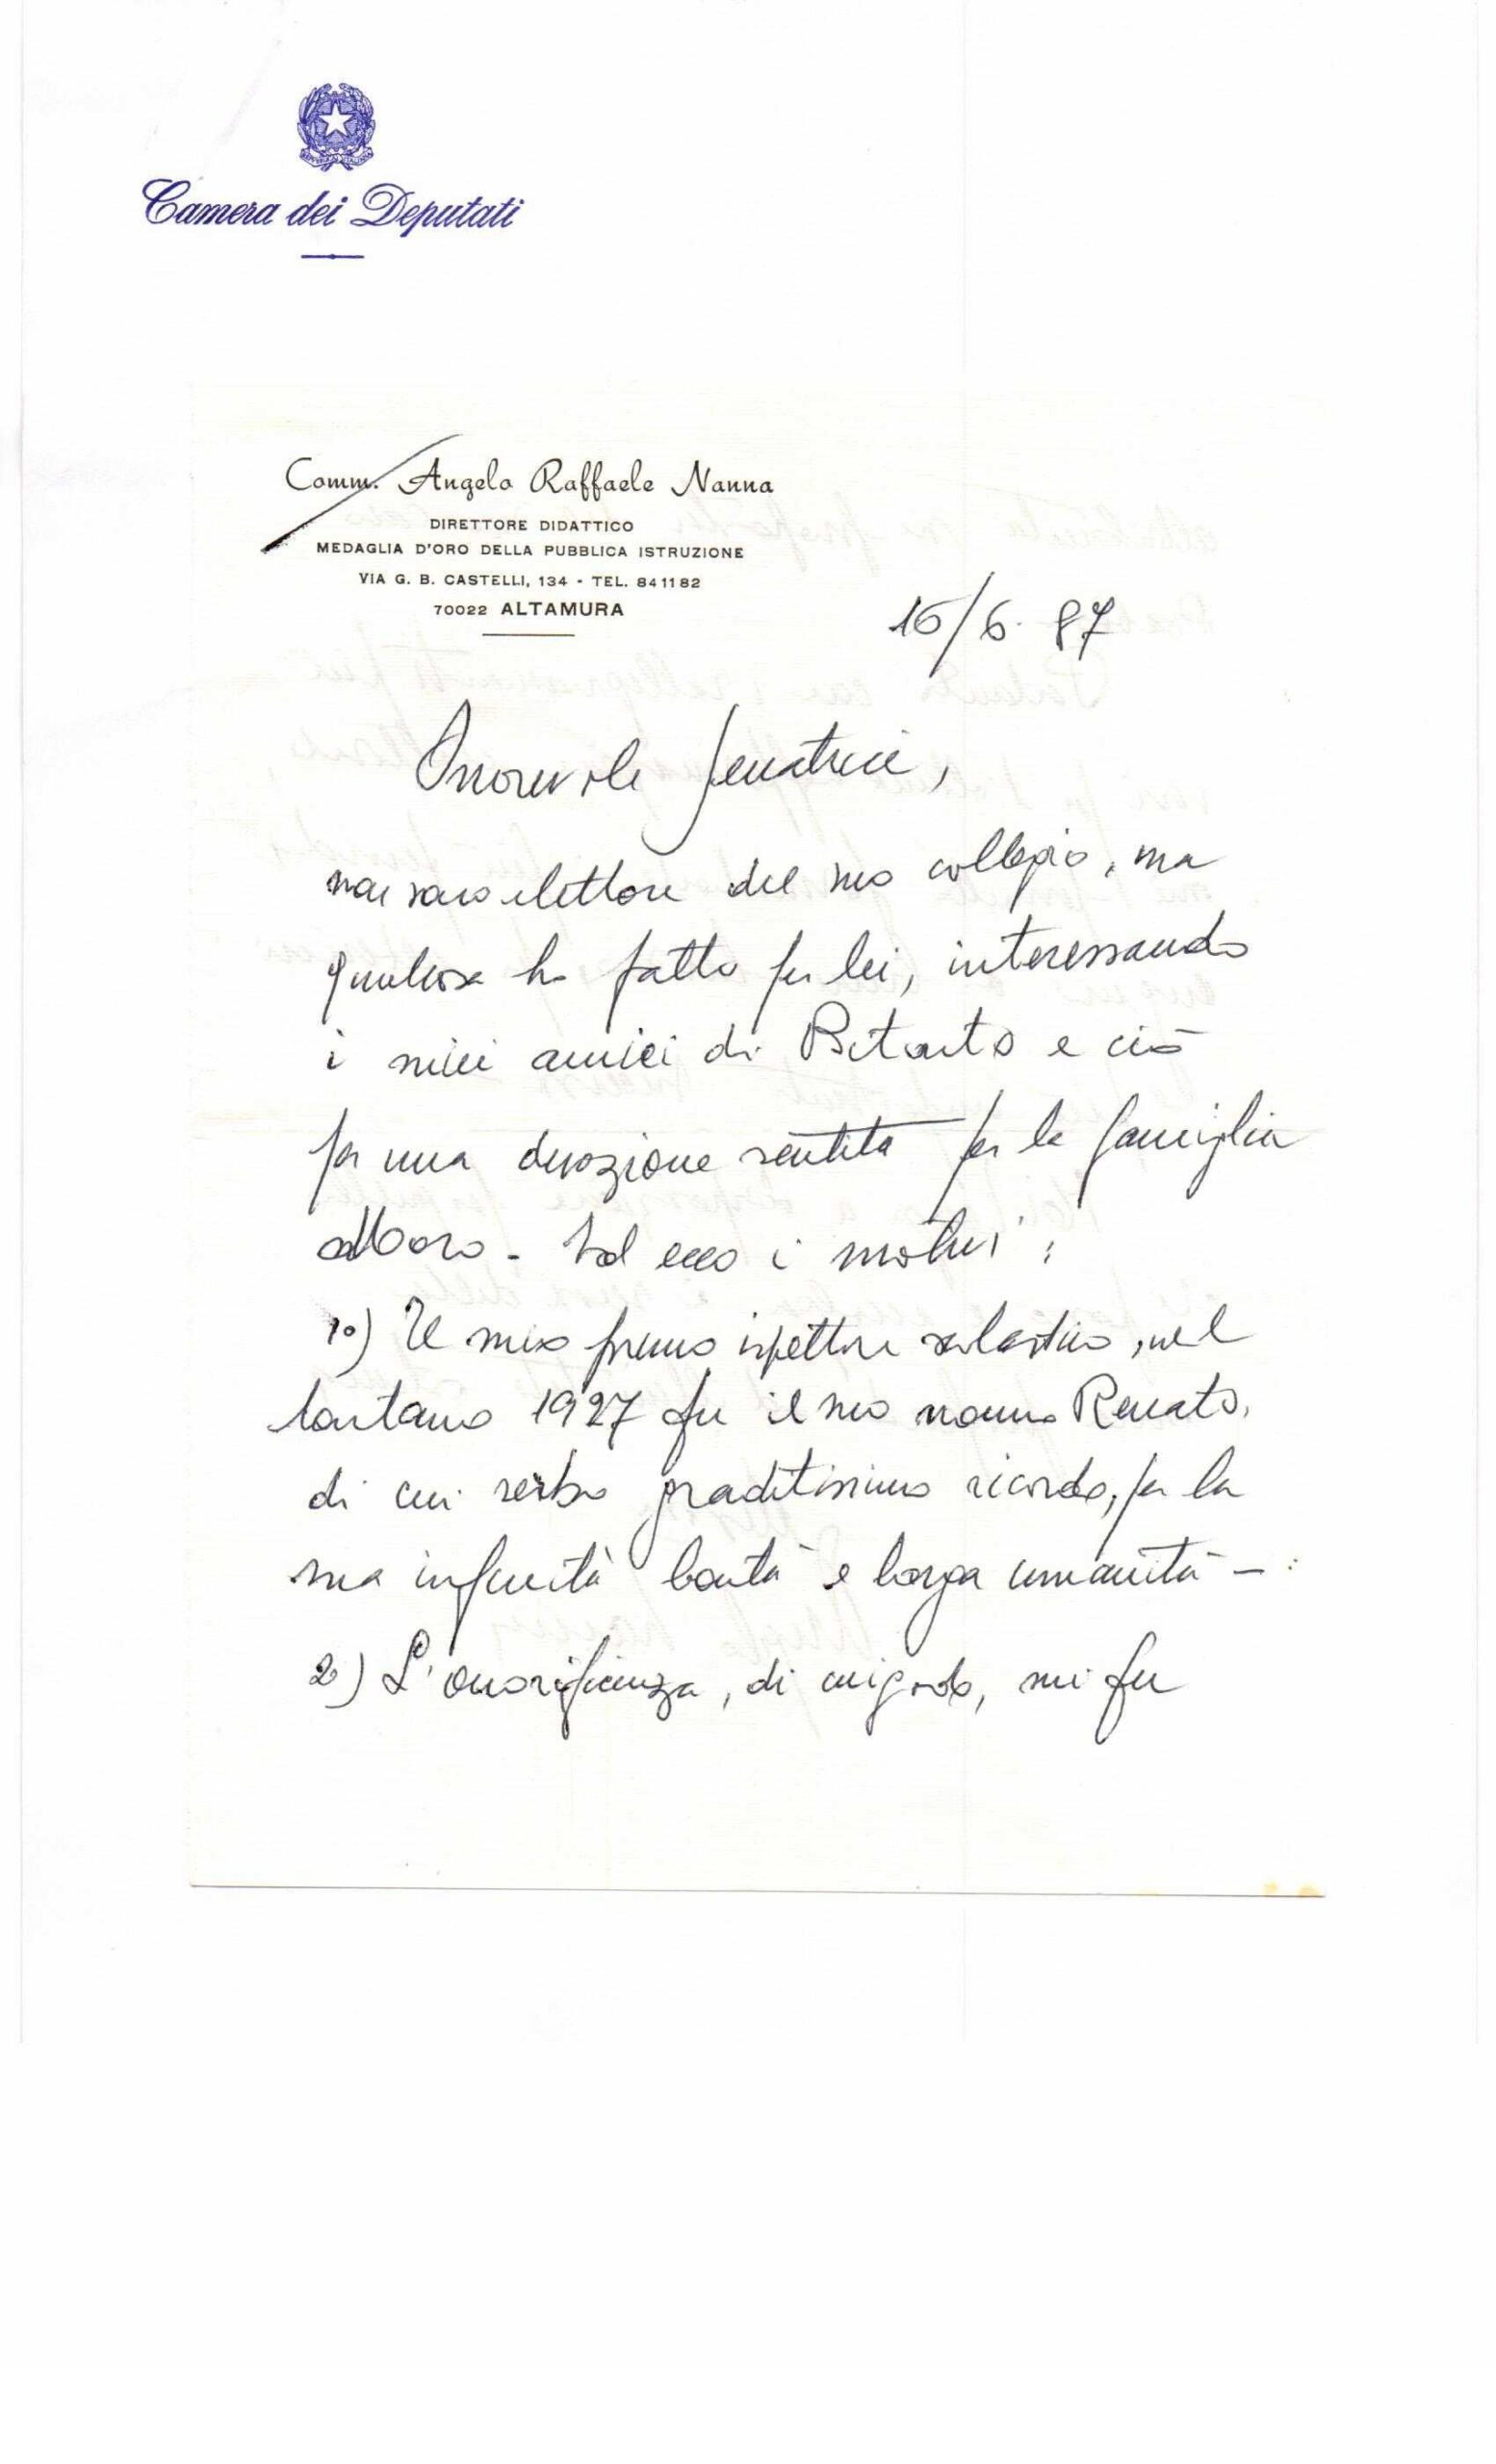 Camera dei Deputati
Comm. Angelo Raffaele Nanna
DIRETTORE DIDATTICO
MEDAGLIA D'ORO DELLA PUBBLICA ISTRUZIONE
VIA G. B. CASTELLI, 134 - TEL. 841182
70022 ALTAMURA
16/6. 87
Onorevole Senatrice,
non sono elettore del suo collegio, ma
qualcosa ho fatto per lei, interessando
i miei amici di Bitonto e ciò
per una devozione sentita per la famiglia
Moro - Ed ecco i motivi:
1°) Il mio primo ispettore scolastico, nel
lontano 1927 fu il suo nonno Renato,
di cui serbo graditissimo ricordo, per la
sua infinità bontà e larga umanità -
2) L'onorificenza, di cui godo, mi fu